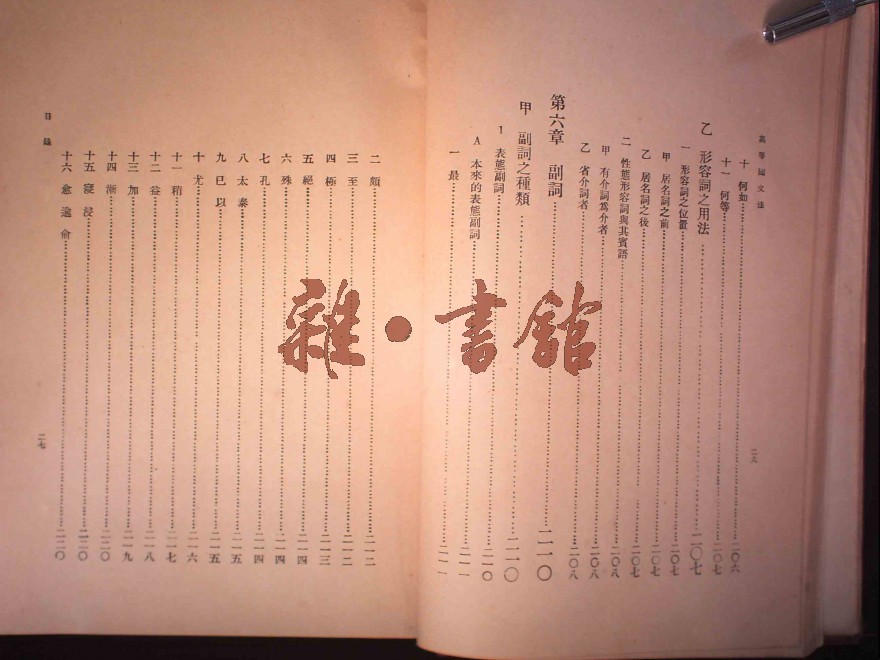 高等國文法
十 何如 二〇六
十一 何等 二〇七
乙 形容詞之用法 二〇七
一 形容詞之位置 二〇七
甲 居名詞之前 二〇七
乙 居名詞之後 二〇七
二 性態形容詞與其賓語 二〇八
甲 有介詞爲介者 二〇八
乙 省介詞者 二〇八
第六章 副詞 二一〇
甲 副詞之種類 二一〇
1 表態副詞 二一〇
A 本來的表態副詞 二一一
一 最 二一一
二八
二 頗 二一二
三 至 二一二
四 極 二一三
五 絕 二一四
六 殊 二一四
七 孔 二一四
八 太 泰 二一五
九 已 以 二一五
十 尤 二一六
十一 稍 二一七
十二 益 二一八
十三 加 二一九
十四 漸 二二〇
十五 寖 浸 二二〇
十六 愈 逾 俞 二二〇
目錄
二七
雜·書館